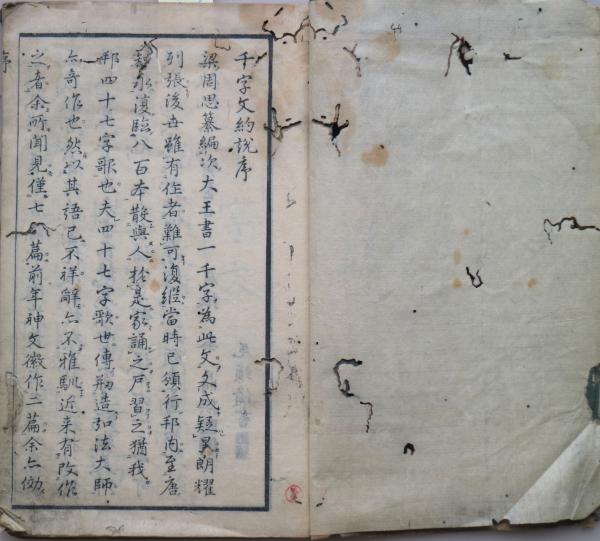 千字文約説序
梁周思纂編次大王書一千字為此文文成疑異朗耀
列張後世雖有作者難可復繼當時已領行邦内至唐
永復臨八百本散與人於是家誦之戸習之猶我
邦四十七字歌也夫四十七字歌世傳剏造弘法大師
亦奇作也然以其語已不祥辭亦不雅馴近来有改作
之者余所聞見僅七八篇前年神文徽作二篇余亦効
序